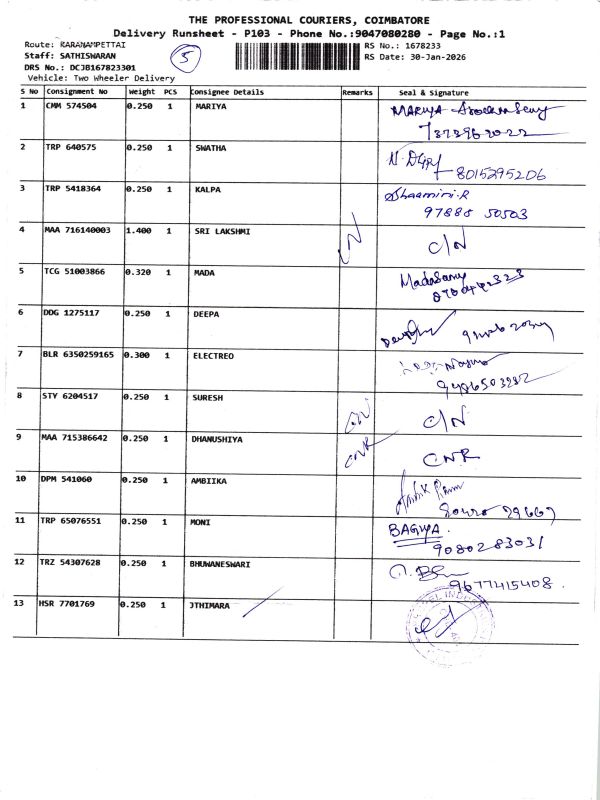 THE PROFESSIONAL COURIERS, COIMBATORE
Delivery Runsheet - P103 - Phone No.:9047080280 - Page No.:1
Route: KARANAMPETTAI
Staff: SATHISWARAN
DRS No.: DCJB167823301
Vehicle: Two Wheeler Delivery
5
RS No.: 1678233
RS Date: 30-Jan-2026
S No Consignment No Weight PCS Consignee Details Remarks Seal & Signature
1 CMM 574504 0.250 1 MARIYA MARIYA
2 TRP 640575 0.250 1 SWATHA
8015395206
3 TRP 5418364 0.250 1 KALPA Shaamini.R
97888 50503
4 MAA 716140003 1.400 1 SRI LAKSHMI C/N
5 TCG 51003866 0.320 1 MADA MadaSamy
6 DDG 1275117 0.250 1 DEEPA
7 BLR 6350259165 0.300 1 ELECTREO
8 STY 6204517 0.250 1 SURESH C/N
9 MAA 715386642 0.250 1 DHANUSHIYA CNR CNR
10 DPM 541060 0.250 1 AMBIIKA
11 TRP 65076551 0.250 1 MONI BAGIYA
9080283031
12 TRZ 54307628 0.250 1 BHUWANESWARI
9677415408.
13 HSR 7701769 0.250 1 JTHIMARA